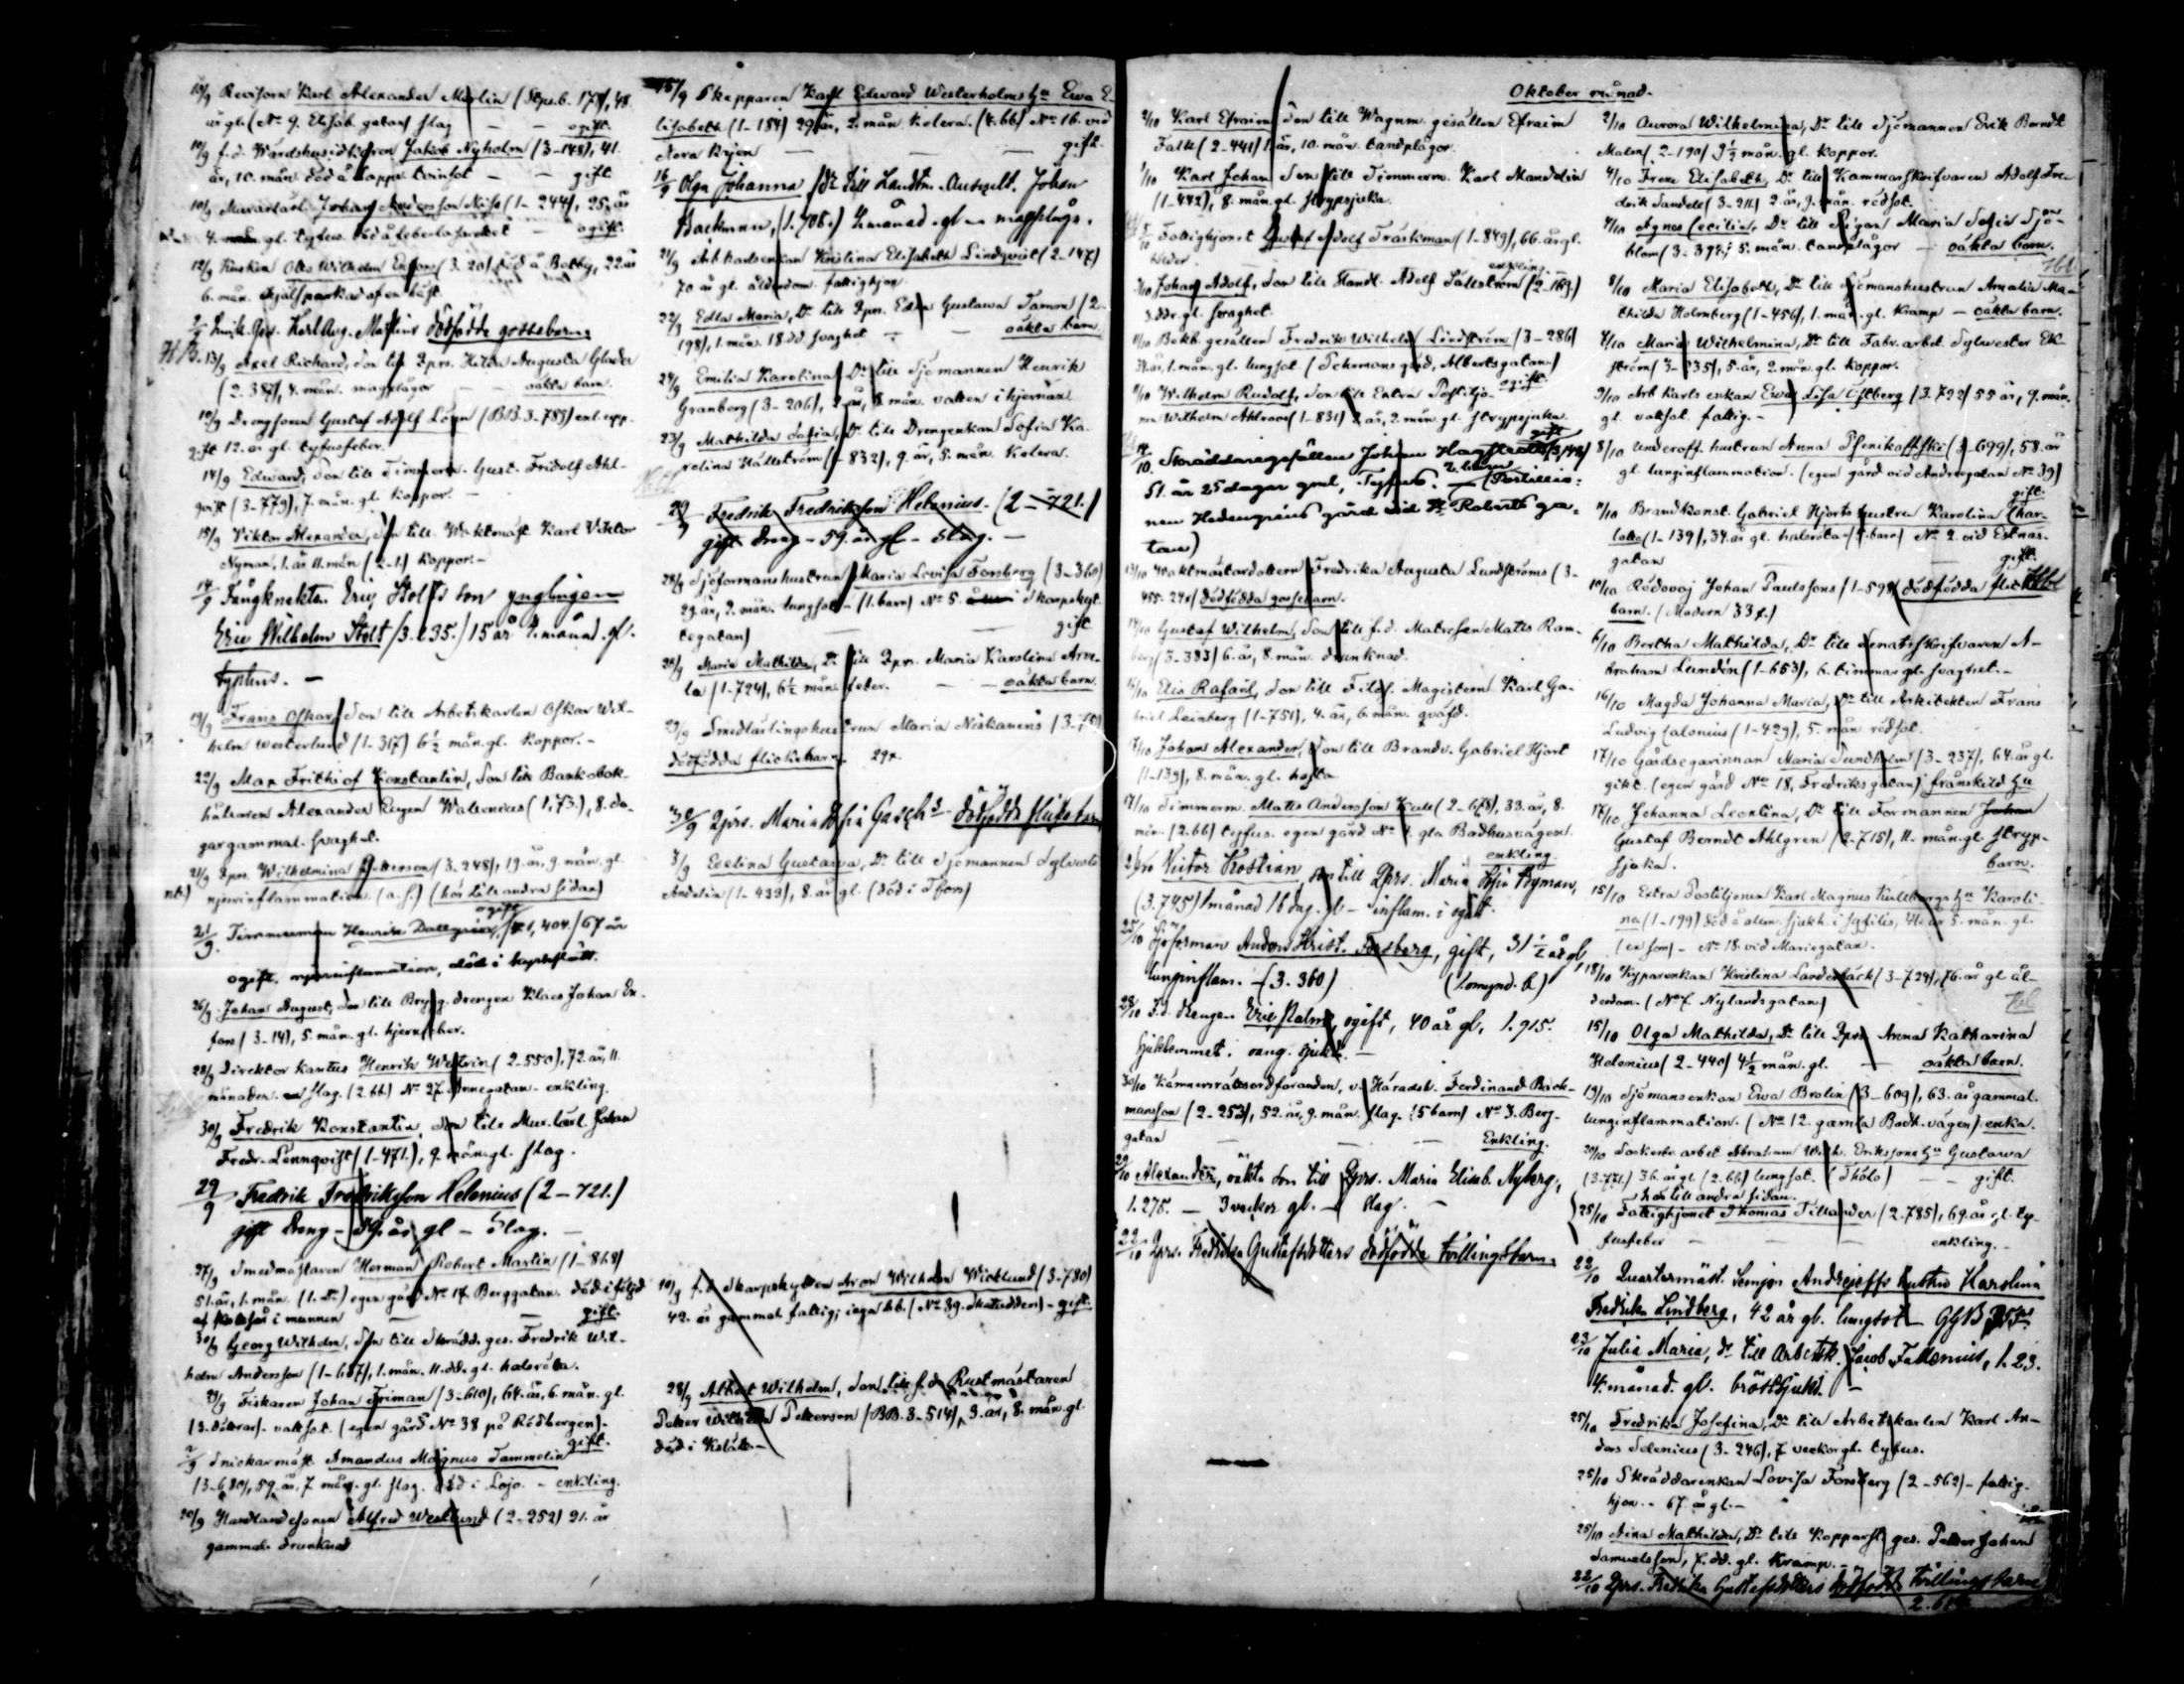 10/9 Revisorn Karl Alexander Merlin (Stpsb. 178), 48
år gl. (No 9. Elisab. gatan) slag — — ogift.
10/9 f.d. Wärdshusidkaren Jakob Nyholm (3-148), 41.
år, 10. mån. död å lapps. — gift
10/9 Murarlärl. Johan Andersson (1-244), 25. år
4. gl. tyfus. död å — ogift.
12/9 Kusken Otto Wilhelm (3. 20) död å Botby, 22. år
6. mån. af en häst.
Karl Aug. dödfödde gossebarn.
13/9 Axel Richard, son till Qprs. Hilda Augusta
(2-387), 4. mån. magplågor — oäkta barn.
10/9 Drengsonen Gustaf Adolf (BB. 3-783)
12. år gl. tyfusfeber.
14/9 Edward, son till Timmerm. Gust. Fridolf Ahl-
qvist (3-779), 7. mån. gl. koppor. —
15/9 Viktor Alexander, son till Waktmäst. Karl Viktor
Nyman, 1. år 11. mån (2-1) koppor. —
14/9 Fångknekten Eric Stolts son ynglingen
Eric Wilhelm Stolt (3. 235.) 15 år 2. månad. gl.
typhus. —
19/9 Frans Oskar, son till Arbetskarlen Oskar Wil-
helm Westerlund (1-317) 6½ mån. gl. koppor. —
22/9 Max Frithiof Konstantin, son till Bankobok-
hållaren Alexander Eugen Wallenius (1. 73.), 8. da-
gar gammal. svaghet.
21/9 Qprs. Wilhelmina Pettersson (3. 248), 19. år, 9. mån. gl.
njurinflammation. (a. s.) (hör till andra sidan)
21/9. Timmerman Henrik Dallgren, ogift (1, 404.) 67 år
ogift. njurinflammation, död i
26/9. Johan August, son till Brygg. drengen Klaes Johan En-
fors (3-14), 5. mån. gl. hjernfeber.
28/9 Direktor kantus Henrik Westrin (2-550), 72. år, 11.
månader. slag. (2. bb.) No 27. Annegatan. enkling.
30/9 Fredrik Konstantin, son till Mur. lärl. Johan
Fredr. Lennqvist (1-471.), 9. mån. gl. slag.
29/9 Fredrik Fredriksson Helenius (2-721.)
gift Dreng — 59. år gl — Slag. —
27/9 Smedmästaren Herman Robert Martin (1-868)
51. år, 1. mån. (1. b.) egen gård No 17. Berggatan. död i följd
af i munnen — gift.
30/9 Georg Wilhelm, son till Skrädd. ges. Fredrik Wil-
helm Andersson (1-657), 1. mån. 11. dd. gl. halsröta.
Fiskaren Johan Friman (3-610), 64. år, 6. mån. gl.
(3. döttrar). vattsot. (egen gård No 38 på Rödbergen). gift.
Snickarmäst. Amandus Magnus Tammelin
(3-680), 59. år, 7. mån. gl. slag. död i Lojo. — enkling.
20/9 Handlandesonen Alfred Westlund (2-252) 21. år
gammal. drunknad
15/9 Skepparen Karl Edward Westerholms hu Ewa E-
lisabeth (1-184) 29. år, 2. mån. kolera. (4. bb) No 16. vid
Norra kajen — — gift.
16/9 Olga Johanna, dr till Landtm. Auscult. Johan
Backman, (1. 706.) 4 månad. gl —
21/9 Arb karlsenkan Kristina Elisabeth Lindqvist (2-147)
70 år gl. ålderdom. fattighjon
22/9 Edla Maria, Dr till Qprs. Edla Gustava Tamm (2-
198), 1. mån. 18. dd. svaghet — — oäkta barn.
24/9 Emilia Karolina, Dr till Sjömannen Henrik
Granberg (3-206), 2. år, 8. mån. vatten i hjernan.
23/9 Mathilda Sofia, Dr till Drengenkan Sofia Ka-
rolina Hällström (1-832), 9. år, 5. mån. Kolera.
29/9 Fredrik Fredriksson Helenius. (2-721.)
gift Dreng — 59. år gl — Slag. —
28/9 Sjöformanshustrun Maria Lovisa Forsberg (3-360)
29. år, 2. mån. lungsot — (1. barn) No 5. i Skarpskyt-
tegatan) — gift
28/9 Maria Mathilda, Dr till Qprs. Maria Karolina Arve-
la (1-724), 6½ mån. feber. — — oäkta barn.
29/9 Smedlärlingshustrun Maria Niskanens (3-
dödfödda flickebarn. 29 år.
30/9 Qprs. Maria Sofia dödfödda flickebarn
Evelina Gustava, Dr till Sjömannen Sylvester
Andelin (1-433), 8. år gl. (död i Thors)
10/9 f.d. Skarpskytten Aron Wilhelm Wicklund (3-780)
42. år gammal fattig; (No 39. Skatudden) — gift.
28/9 Albert Wilhelm, son till f.d. Rustmästaren
Petter Wilhelm Petterson (BB. 3-514), 3. år, 8. mån. gl
död i Kisla —
Oktober månad.
2/10 Karl Efraim, Son till Wagnm. gesällen Efraim
Falk (2-441) 1. år, 10. mån. tandplågor.
1/10 Karl Johan Son till Timmerm. Karl Mandelin
(1-442), 8. mån. gl. strypsjuka.
5/10 Fattighjonet Gustaf Adolf Träskman (1-849), 66. år gl.
enkling.
Johan Adolf, Son till Handl. Adolf Sällström (2-163)
3. ddr. gl. svaghet.
11/10 Bokb. gesällen Fredrik Wilhelm Lindström (3-286)
34. år, 1. mån. gl. lungsot. (Sohrmans gård, Albertsgatan) ogift
11/10 Wilhelm Rudolf, Son till Extra Postiljo-
nen Wilhelm Ahlroos (1-831) 2. år, 2. mån. gl. strypsjuka.
14/10. Skräddaregesällen Johan Hagstedt (3/142) gift
51. år 25 dagar gml, Tyfus. 2. barn (Postillio-
nen Hedengréns gård vid St. Roberts ga-
tan)
13/10 Waktmästardottern Fredrika Augusta Lundströms (3-
455. 24 år) dödfödda gossebarn.
14/10 Gustaf Wilhelm, Son till f.d. Matrosen Matts Ram-
berg (3-383) 6. år, 8. mån. drunknad.
15/10 Elis Rafaël, Son till Filos. Magistern Karl Ga-
briel Leinberg (1-751), 4. år, 6. mån. qväfd.
17/10 Johans Alexander, Son till Brandv. Gabriel Hjort
(1-139), 8. mån. gl. hosta
17/10 Timmerm. Matts Andersson (2-678), 33. år, 8.
mån. (2. bb) tyfus. egen gård No 7. gla Badhusvägen. enkling
Victor Kostian, son till Qprs. Maria Sofia Nyman,
(3. 745) 1 månad 16 dag. gl — inflam. i ögat.
25/10 Sjöforman Anders Krist. Forsberg, gift, 31½ år gl,
lunginflam. — (3. 360) (1. omynd. b.)
28/10 F.d. Drengen Eric Palm, ogift, 40 år gl, 1. 915.
Sjukhemmet. vang. sjukd. —
30/10 Kämnersrättsordföranden, v. Häradsh. Ferdinand Back-
mansson (2-253), 52. år, 9. mån. slag. (5 barn) No 3. Berg-
gatan — — Enkling.
29/10 Alexander, oäkta son till Qprs. Maria Elisab. Nyberg,
1. 275. — 3 veckor gl. — slag. —
22/10 Qprs. Fredrika Gustafsdotters dödfödda tvillingsbarn.
2/10 Aurora Wilhelmina, Dr till Sjömannen Erik Berndt
Malm (2-190) 9½ mån. gl. koppor.
4/10 Irene Elisabeth, Dr till Kammarskrifvaren Adolf Fre-
drik Sandell (3-211) 2. år, 9. mån. rödsot.
4/10 Agnes Cecilia, Dr till Pigan Maria Sofia Sjö-
blom (3-372; 5. mån. tandplågor — oäkta barn.
8/10 Maria Elisabeth, Dr till Sjömanshustrun Amalia Ma-
thilda Holmberg (1-456), 1. mån. gl. kramp — oäkta barn.
4/10 Maria Wilhelmina, Dr till Fabr. arbet. Sylvester Ek-
ström (3-235), 5. år, 2. mån. gl. koppor.
9/10 Arb karls enkan Ewa Lisa Östberg (3. 792) 55 år, 9. mån.
gl. vattsot. fattig. —
8/10 Underoff. hustrun Anna (3-699), 58. år
gl. lunginflammation. (egen gård vid Andregatan No 39) gift.
11/10 Brandkonst. Gabriel Hjorts hustru Karolina Char-
lotta (1-139), 34. år gl. halsröta — (4. barn) No 2. vid Estnäs-
gatan — gift.
10/10 Rådovoj Johan Paulssons (1-598) dödfödda flicke-
barn. (Modern 33 år.)
6/10 Bertha Mathilda, Dr till Senatsskrifvaren A-
braham Lundén (1-653), 6. timmar gl. svaghet. —
16/10 Magda Johanna Maria, Dr till Arkitekten Frans
Ludvig Calonius (1-429), 5. mån rödsot.
17/10 Gårdsegarinnan Maria Sundholm (3-237), 64. år gl.
gikt. (egen gård No 18, Fredriksgatan) frånskild hu
17/10 Johanna Leontina, Dr till Formannen Johan
Gustaf Berndt Ahlgren (2-715), 11. mån. gl. stryp-
sjuka. barn.
15/10 Extra Postiljonen Karl Magnus Kullbergs hu Karoli-
na (1-199) död å alm. sjukh. i syfilis, 41. år 5. mån. gl.
(en son) — No 18 vid Mariegatan.
18/10 Kyparenkan Kristina Landerbäck (3-724), 76. år gl ål-
derdom. (No 7. Nylandsgatan)
15/10 Olga Mathilda, Dr till Qprs Anna Katharina
Helenius (2-440) 4½ mån. gl. — oäkta barn.
19/10 Sjömansenkan Ewa Brolin (3-609), 63. år gammal.
lunginflammation. (No 12. gamla Badh. vägen). enka.
20/10 Sockerbr. arbet. Abraham Wilh. Erikssons hu Gustava
(3. 771.) 36. år gl. (2. bb) lungsot. (Thölö) — — gift.
hör till andra sidan.
25/10 Fattighjonet Thomas Tillander (2. 785), 69. år gl. ty-
fusfeber — — — enkling. —
22/10 Quartermäst. Semjon Andrejeffs hustru Karolina
Fredrika Lindberg, 42 år gl. lungsot —
23/10 Julia Maria, dr till Arbetsk. Jacob Fallenius, 1. 23.
4. månad. gl. bröstsjukd. —
25/10 Fredrika Josefina, Dr till Arbetskarlen Karl An-
ders Selenius (3-246), 7 veckor gl. tyfus.
25/10 Skräddarenkan Lovisa Forsberg (2-562) — fattig-
hjon. — 67. år gl. —
25/10 Aina Mathilda, Dr till Kopparsl. ges. Petter Johan
Samuelsson, 7. dd. gl. kramp. —
22/10 Qprs. Fredrika Gustafsdotters dödfödda tvillingsbarn